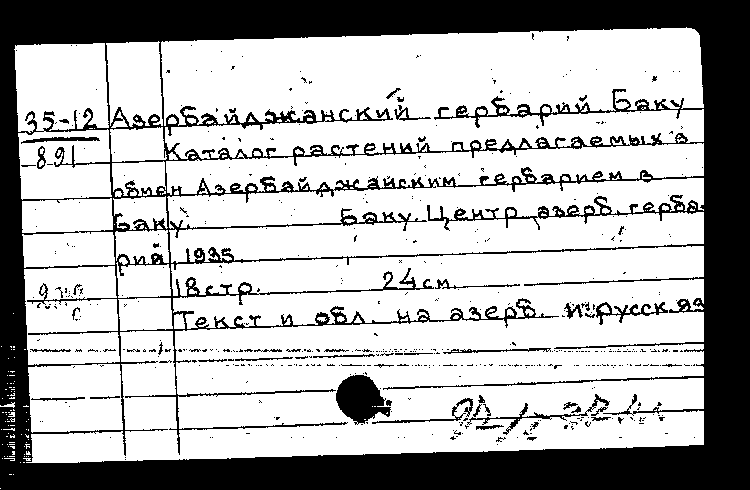 35-12 Азербайджанский гербарий Баку
891 Каталог растений предлагаемых в
обмен Азербайджанским гербарием в
Баку. Баку. Центр. азерб. герба-
рий, 1935.
18 стр. 24 см.
Текст и обл. на азерб. и русск. яз